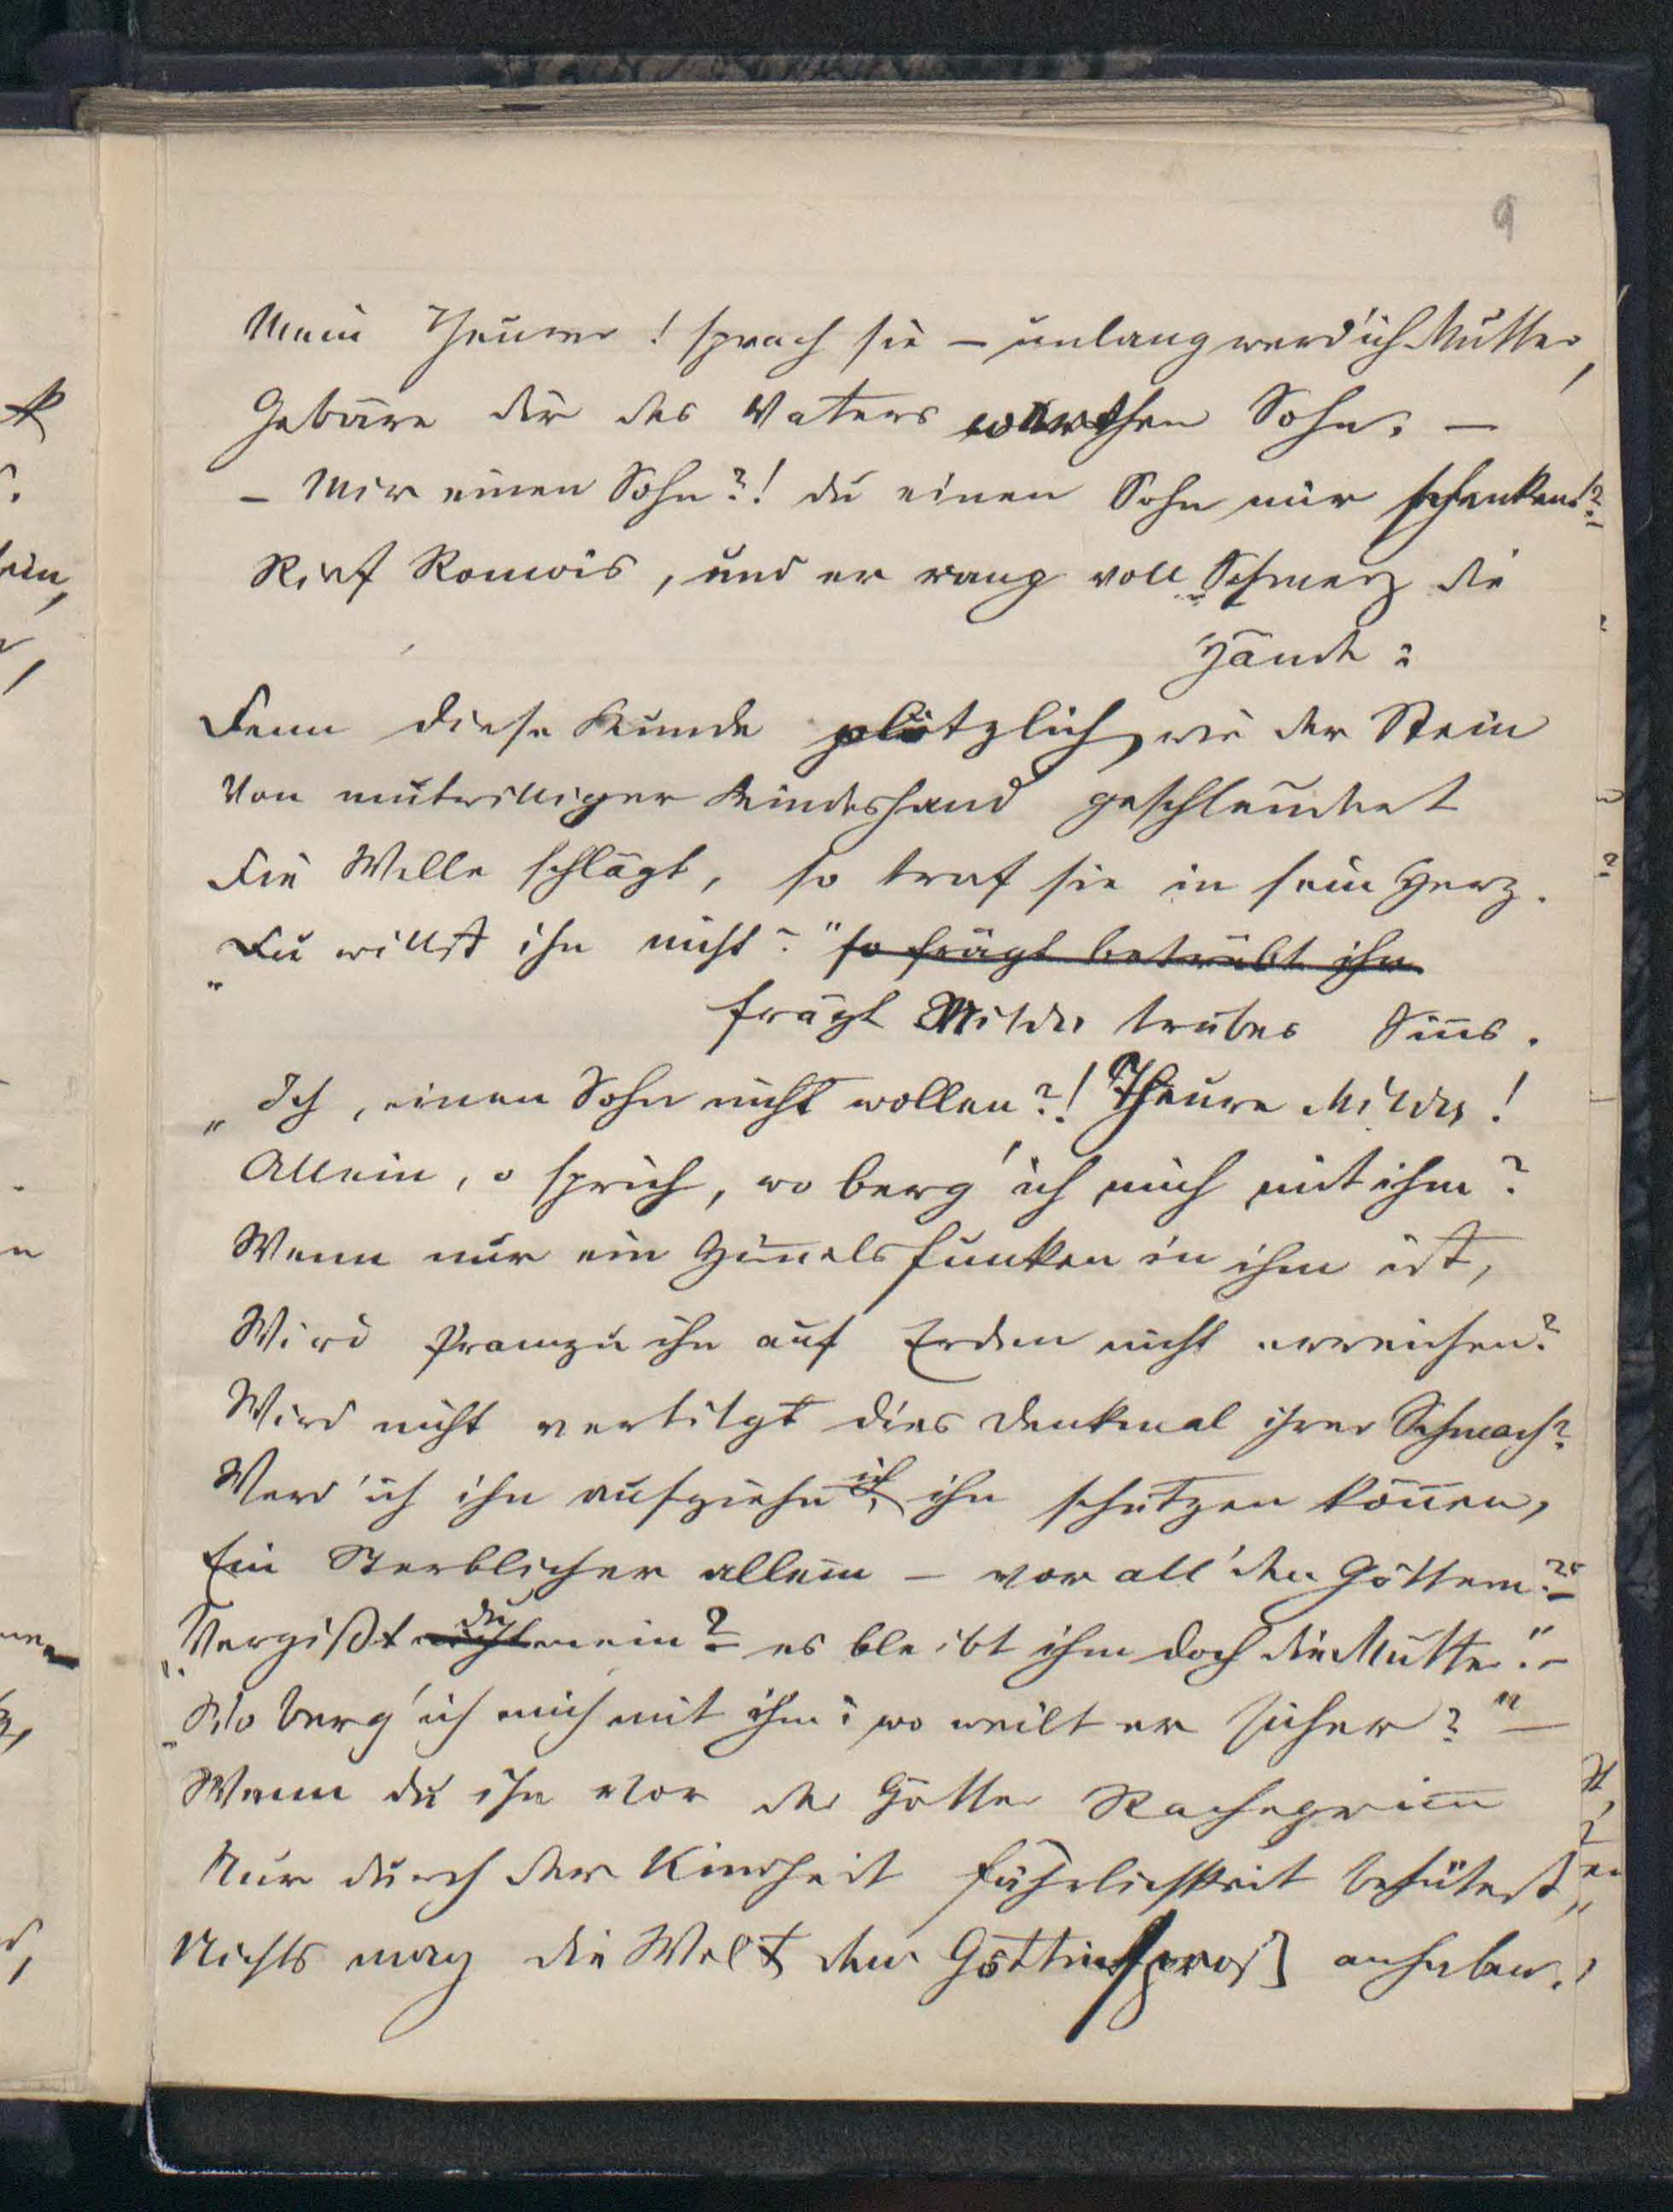 9
Mein Theurer! sprach sie – unlang werd' ich Mutter,
Gebäre dir des Vaters werthen Sohn. –
– Mir einen Sohn?! du einen Sohn mir schenken!?
Rief Romois, und er rang voll Schmerz die
Hände:
Denn diese Kunde plötzlich, wie der Stein
Von mutwilliger Kindeshand geschleudert
Die Welle schlägt, so traf sie in sein Herz.
„Du willst ihn nicht?" so frägt betrübt ihn
frägt Milda trübes Sin̄s.
„Ich, einen Sohn nicht wollen?! Theure Milda!
Allein, o sprich, wo berg' ich mich mit ihm?
Wenn nur ein Him̄elsfunken in ihm ist,
Wird Pramzu ihn auf Erden nicht erreichen?
Wird nicht vertilgt dies Denkmal ihrer Schmach?
Werd' ich ihn aufziehn, ich ihn schützen kön̄en,
Ein Sterblicher allein – vor all' den Göttern?" –
„Vergißt nicht du mein? – es bleibt ihm doch die Mutter." –
„Wo berg' ich mich mit ihm? wo weilt er sicher?" –
Wenn du ihn vor der Götter Rachegrim̄
Nur durch der Kindheit Fährlichkeit behütest,
Nichts mag die Welt dem Göttinsproß anhaben.